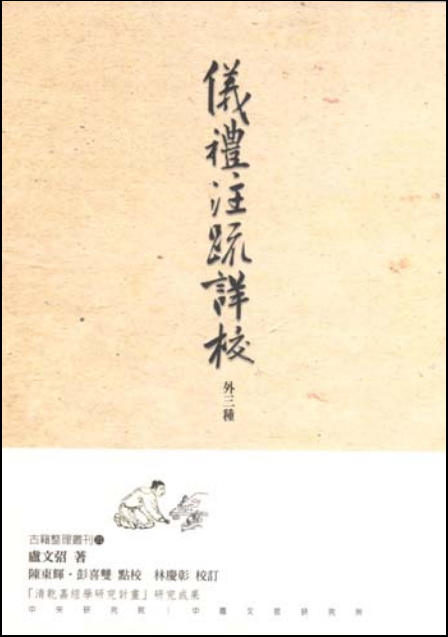 儀禮注疏詳校
外三種
古籍整理叢刊
盧文弨 著
陳東輝・彭喜雙 點校　林慶彰 校訂
「清乾嘉經學研究計畫」研究成果
中央研究院｜中國文哲研究所